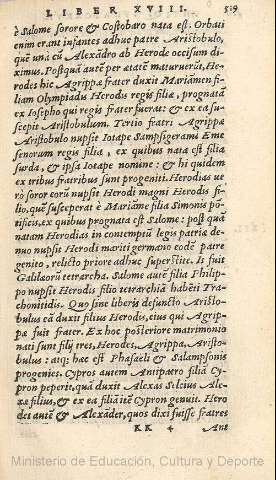 LIBER XVIII. 519
è Salome sorore & Costobaro nata est. Orbati
enim erant infantes adhuc patre Aristobulo,
que una cū Alexãdro ab Herode occisum di-
ximus. Postquā autē per ætatē maturuerūt, He-
rodes hic Agrippæ frater duxit Mariāmen fi-
liam Olympiadis Herodis regis filiæ, prognatā
ex Iosepho qui regis frater fuerat: & ex ea su-
scepit Aristobulum. Tertio fratri Agrippæ
Aristobulo nupsit Iotape Sampsigerami Eme
senorum regis filia, ex quibus nata est filia
surda, & ipsa Iotape nomine: & hi quidem
ex tribus fratribus sunt progeniti. Herodias ue
rò soror eorū nupsit Herodi magni Herodis fi-
lio, quē susceperat è Mariāme filia Simonis pō-
tificis, ex quibus prognata est Salome: post quā
natam Herodias in contemptū legis patriæ de-
nuo nupsit Herodi mariti germano eodē patre
genito, relicto priore adhuc superstite. Is fuit
Galilæorū tetrarcha. Salome autē filia Philip-
po nupsit Herodis filio tetrarchiā habēti Tra-
chonitidis. Quo sine liberis defuncto Aristo-
bulus eā duxit filius Herodis, eius qui Agrip-
pæ fuit frater. Ex hoc posteriore matrimonio
nati sunt filij tres, Herodes, Agrippa, Aristo-
bulus: atq; hæc est Phasaeli & Salampsonis
progenies. Cypros autem Antipatro filiā Cy-
pron peperit, quā duxit Alexas Selcius Ale-
xæ filius, & ex ea filiā itē Cypron genuit. Hero
des autē & Alexāder, quos dixi fuisse fratres
KK 4 Ant
Ministerio de Educación, Cultura y Deporte